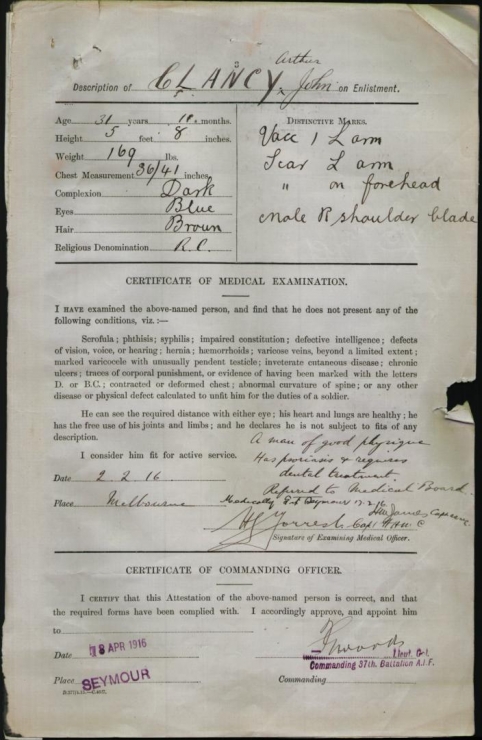 Arthur
Description of CLANCY, John on Enlistment.
Age 31 years 10 months.
Height 5 feet 8 inches.
Weight 169 lbs.
Chest Measurement 36/41 inches
Complexion Dark
Eyes Blue
Hair Brown
Religious Denomination R.C.
DISTINCTIVE MARKS.
Vacc 1 L arm
Scar L arm
" on forehead
Mole R shoulder blade
CERTIFICATE OF MEDICAL EXAMINATION.
I HAVE examined the above-named person, and find that he does not present any of the
following conditions, viz. :—
Scrofula; phthisis; syphilis; impaired constitution; defective intelligence; defects
of vision, voice, or hearing; hernia; hæmorrhoids; varicose veins, beyond a limited extent;
marked varicocele with unusually pendent testicle; inveterate cutaneous disease; chronic
ulcers; traces of corporal punishment, or evidence of having been marked with the letters
D. or B.C.; contracted or deformed chest; abnormal curvature of spine; or any other
disease or physical defect calculated to unfit him for the duties of a soldier.
He can see the required distance with either eye; his heart and lungs are healthy; he
has the free use of his joints and limbs; and he declares he is not subject to fits of any
description.
A man of good physique
I consider him fit for active service.
Has psoriasis & requires
dental treatment.
Date 2.2.16
Referred to Medical Board.
Place Melbourne
Medically Seymour
Capt
Signature of Examining Medical Officer.
CERTIFICATE OF COMMANDING OFFICER.
I CERTIFY that this Attestation of the above-named person is correct, and that
the required forms have been complied with. I accordingly approve, and appoint him
to
Date 8 APR 1916
Woods
Lieut. Col.
Commanding 37th. Battalion A.I.F.
Place SEYMOUR
Commanding